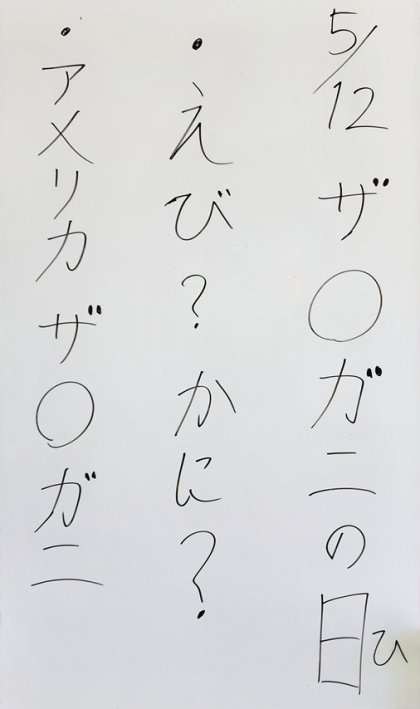 5/12 ザ〇ガニの日ひ
・えび?かに?
・アメリカザ〇ガニ